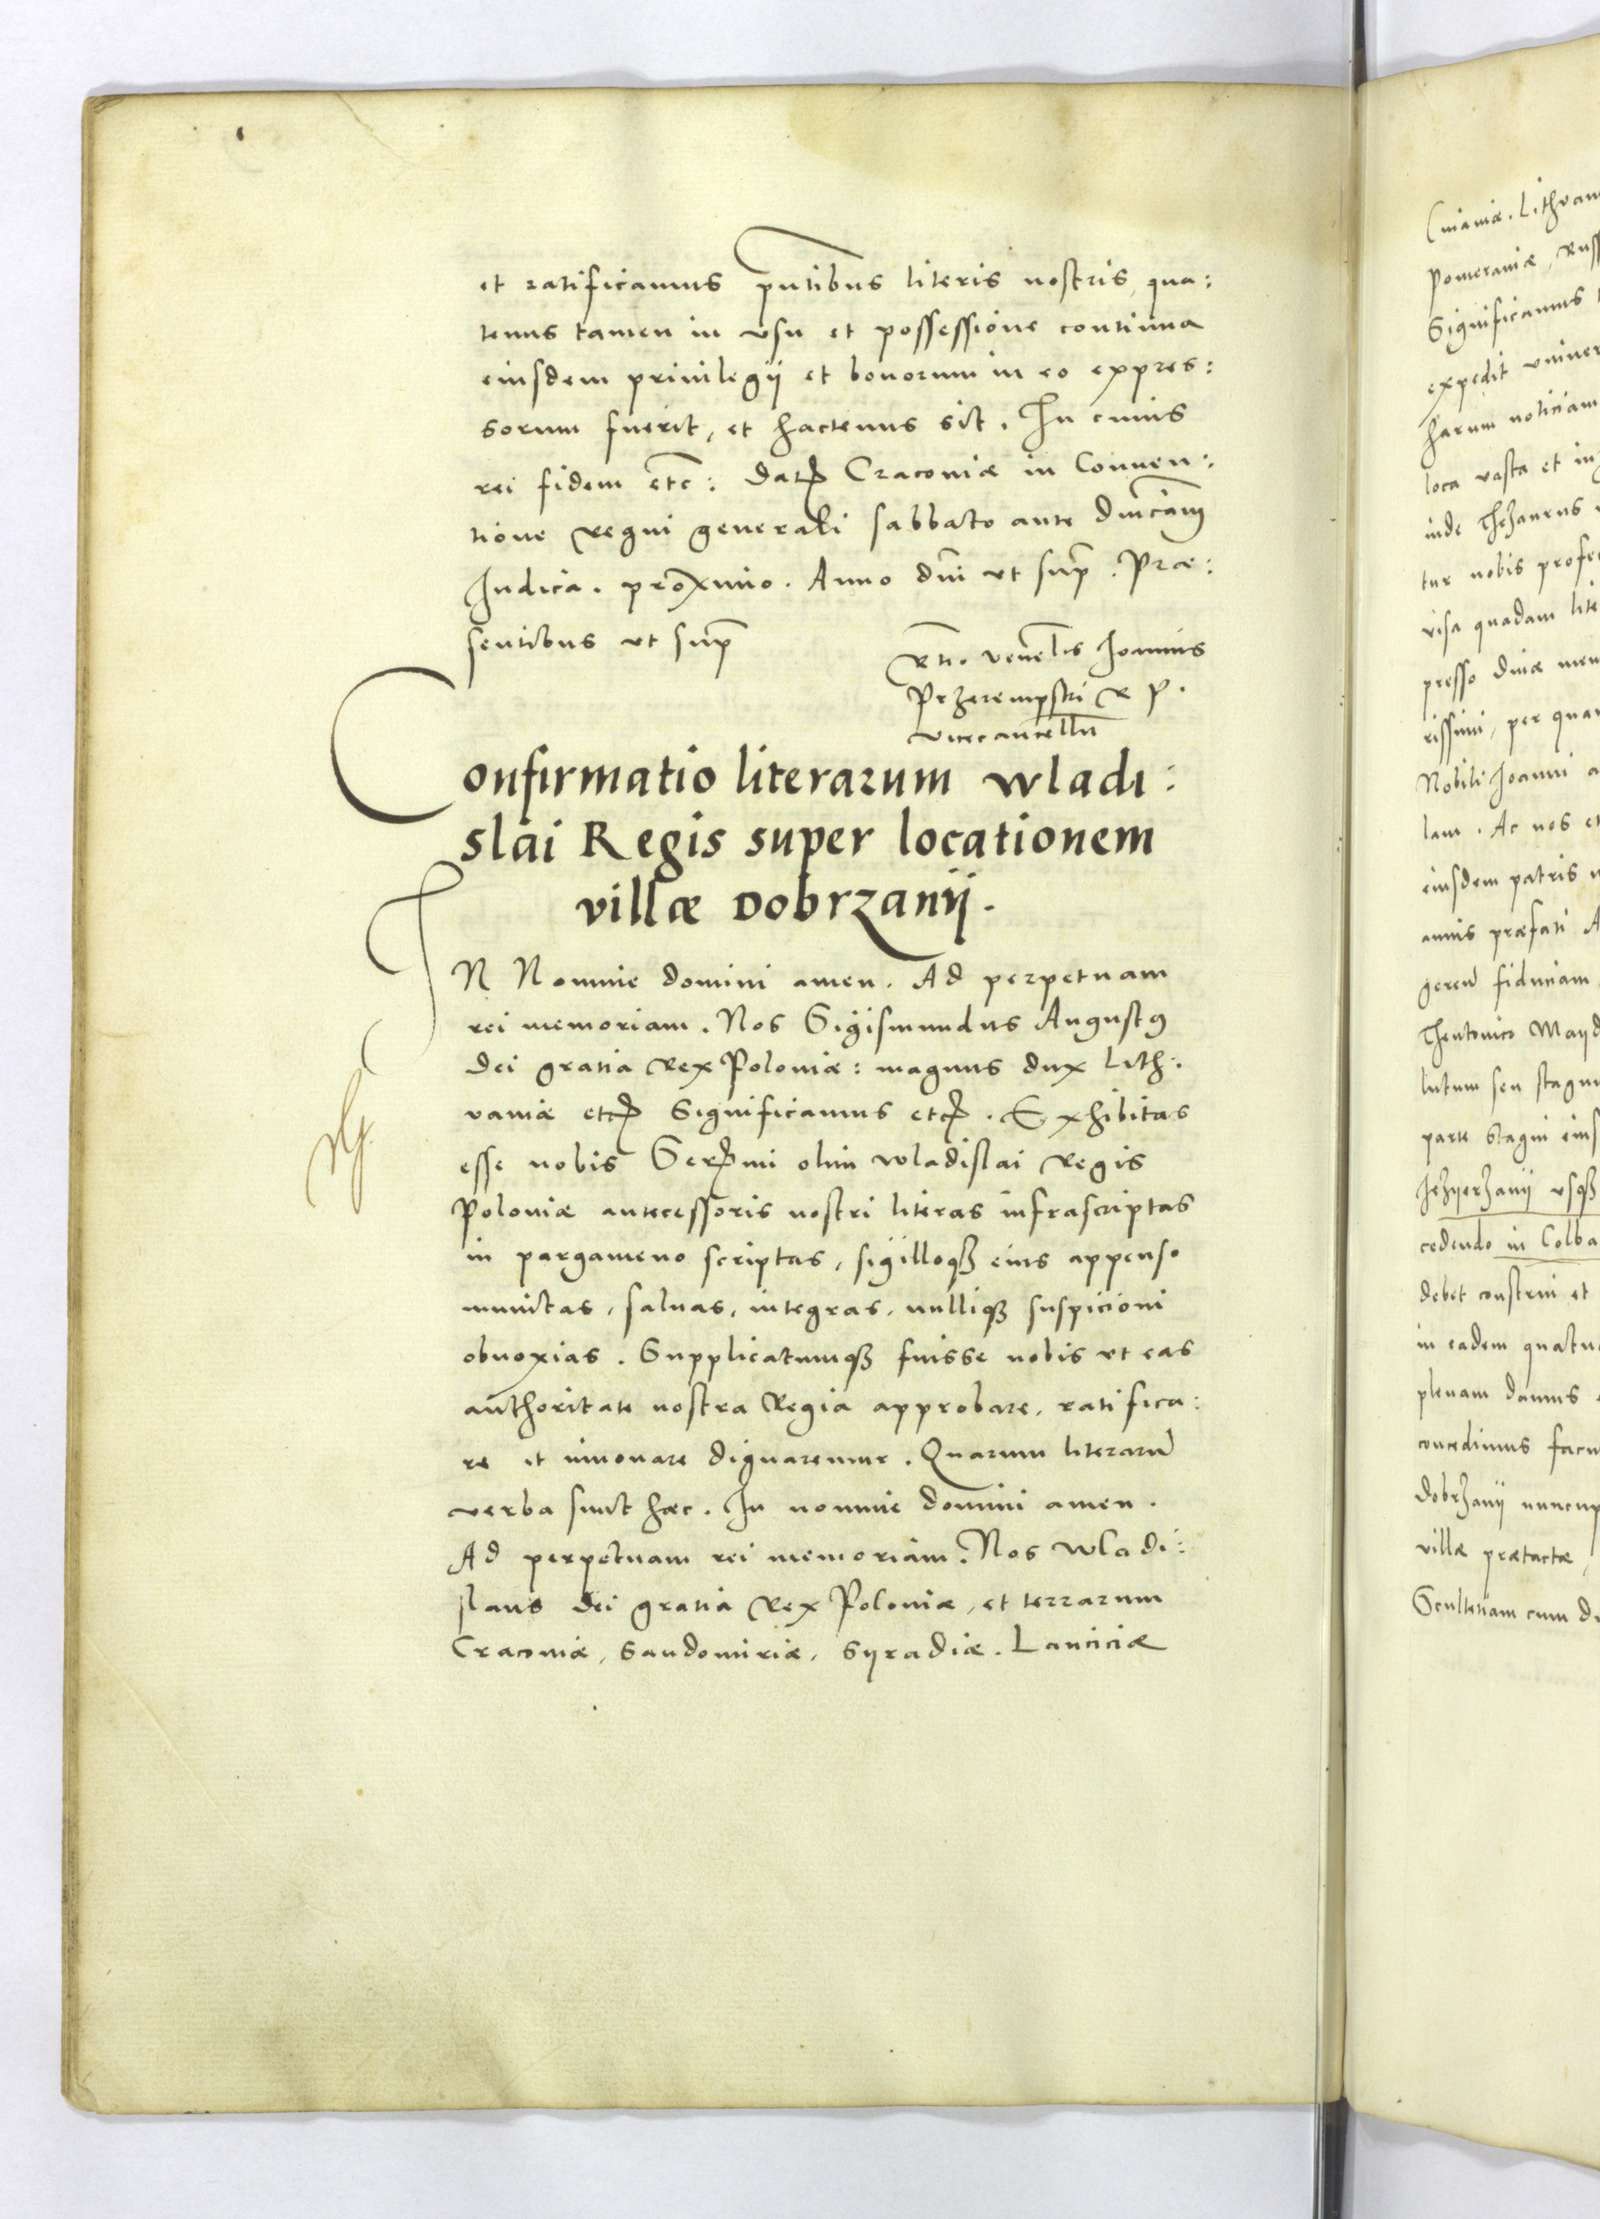 et ratificamus pntibus literis nostris, qua:
tenus tamen in vsu et possessione continua
eiusdem priuilegij et bonorum in eo expres:
sorum fuerit, et hactenus sit. In cuius
rei fidem etc: Dat Craconiæ in Conuen:
tione Regni generali sabbato ante Dnicam
Iudica. proximo. Anno dni vt sup. Præ:
sentibus vt sup
Rtio. venelis Ioannis
Przerempski R P.
vicecancellu
Confirmatio literarum Wladi:
slai Regis super locationem
villæ Dobrzanij.
IN Nomine domini amen. Ad perpetuam
rei memoriam. Nos Sigismundus August9
Dei gratia Rex Poloniæ: magnus dux Lith:
vaniæ etc Significamus etc. Exhibitas
esse nobis Sermi olim Wladislai Regis
Poloniæ antecessoris nostri literas infrascriptas
in pargameno scriptas, sigilloqȝ eius appenso
munitas, saluas, integras, nulliqȝ suspicioni
obnoxias. Supplicatumqȝ fuisse nobis vt eas
authoritate nostra Regia approbare, ratifica:
re et innouare dignaremur. Quarum literarū
verba sunt hæc. In nomine domini amen.
Ad perpetuam rei memoriam. Nos Wladi:
slaus Dei gratia Rex Poloniæ, et terrarum
Craconiæ, Sandomiriæ, Syradiæ. Lanciciæ
Cuiauiæ. Lithvan
Pomeraniæ, Russ
Significamus
expedit vniuer
harum noticiam
loca vasta et in
inde Thezaurus
tur nobis profe
visa quadam lite
presso diuæ mem
rissimi, per quam
Nobili Ioanni a
lam. Ac nos et
eiusdem patris
annis præfati A
gerem fiduciam
Theutonico Mayd
lutum seu stagnu
parte Stagni eius
Jezyerzany vsqȝ
cedendo in Colba
debet construi et
in eadem quatu
plenam damus
concedimus facu
Dobrzanij nuncup
villæ prætactæ,
Scultetiam cum d